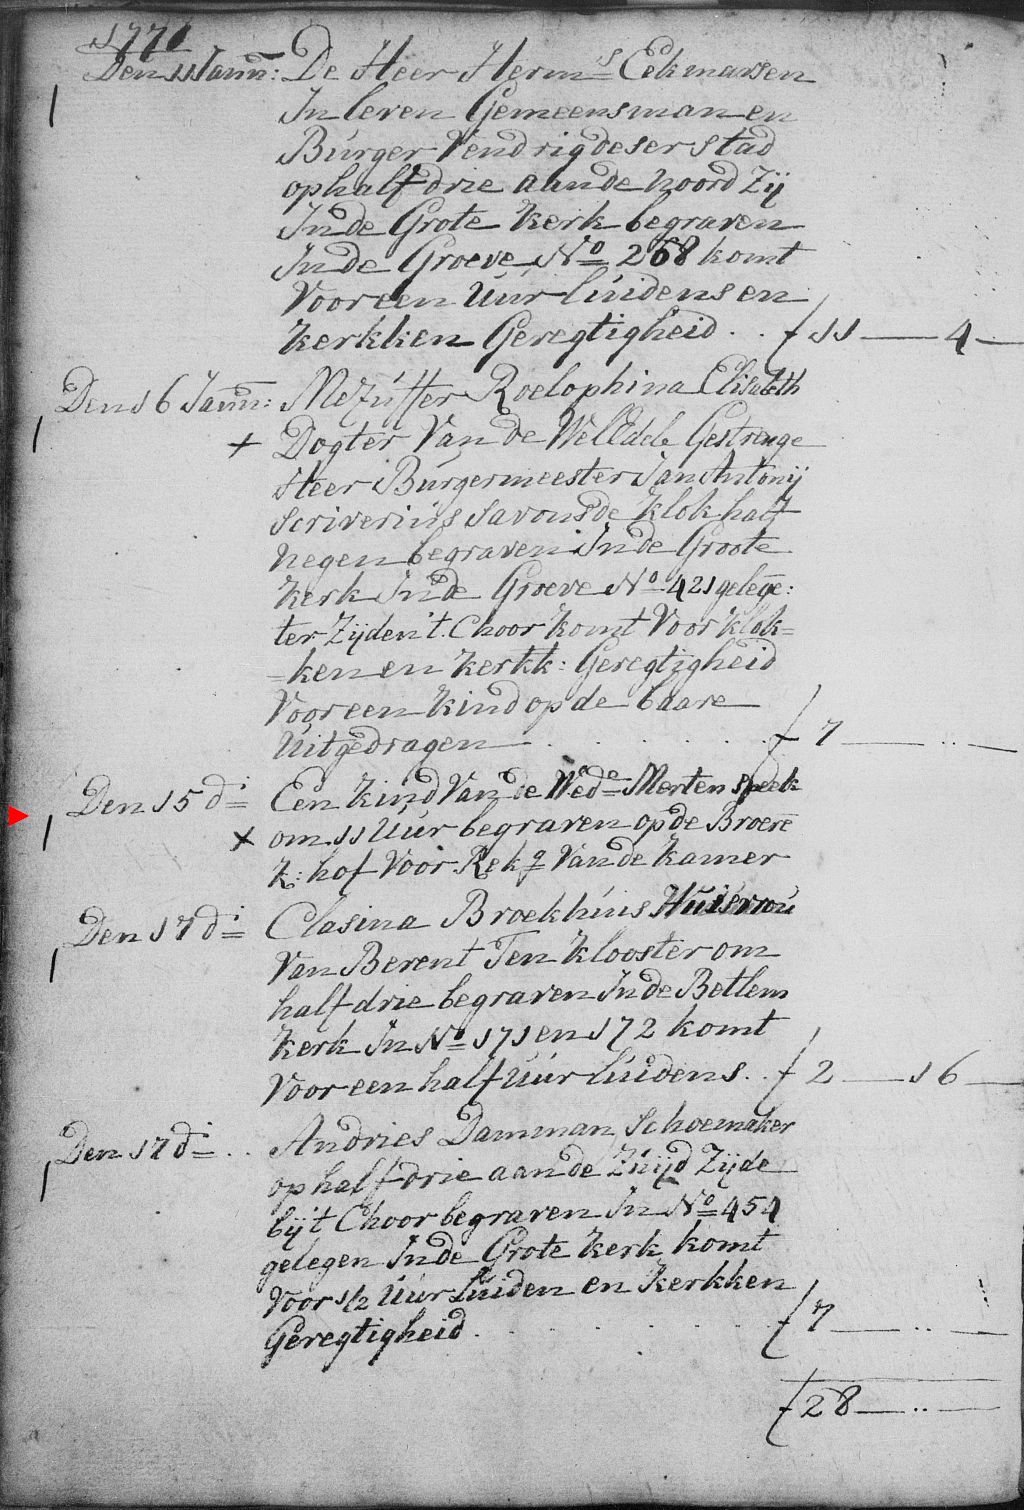 1771
Den 11 Janu: De Heer Herms Eekmarsen
In leven Gemeensman en
Burger Vendrig deser stad
op half drie aan de noord Zij
In de Grote Kerk begraven
In de Groeve No 268 komt
Voor een Uúr luidens en
Kerkken Geregtigheid . . f 11 — 4 —
Den 16 Janu: Mejuffer Roelophina Elisabeth
+ Dogter Van de WelEdele Gestrenge
Heer Burgermeester Jan Antonij
Scriverius Savonds de klok half
negen begraven In de Groote
Kerk In de Groeve No 421 gelege:
ter Zijden 't. Choor komt Voor klok=
=ken en Kerkk: Geregtigheid
Voor een kind op de baare
Uitgedragen . . . . . . . f 7 — .. —
Den 15 di Een kind Van de Wedo Merten Speek
x om 11 Uúr begraven op de Broere
K: hof Voor Rek g Van de Kamer
Den 17 di Clasina Broekhuis Huisvrou
Van Berent Ten Klooster om
half drie begraven In de Betlem
Kerk In No 171 en 172 komt
Voor een half Uúr luidens . . f 2 — 16 —
Den 17 di . . Andries Damman Schoemaker
op half drie aan de Zuijd Zijde
bij't Choor begraven In No 454
gelegen In de Grote Kerk komt
Voor 1/2 Uúr luiden en Kerkken
Geregtigheid . . . . . . . f 7 — .. —
f 28 — .. —